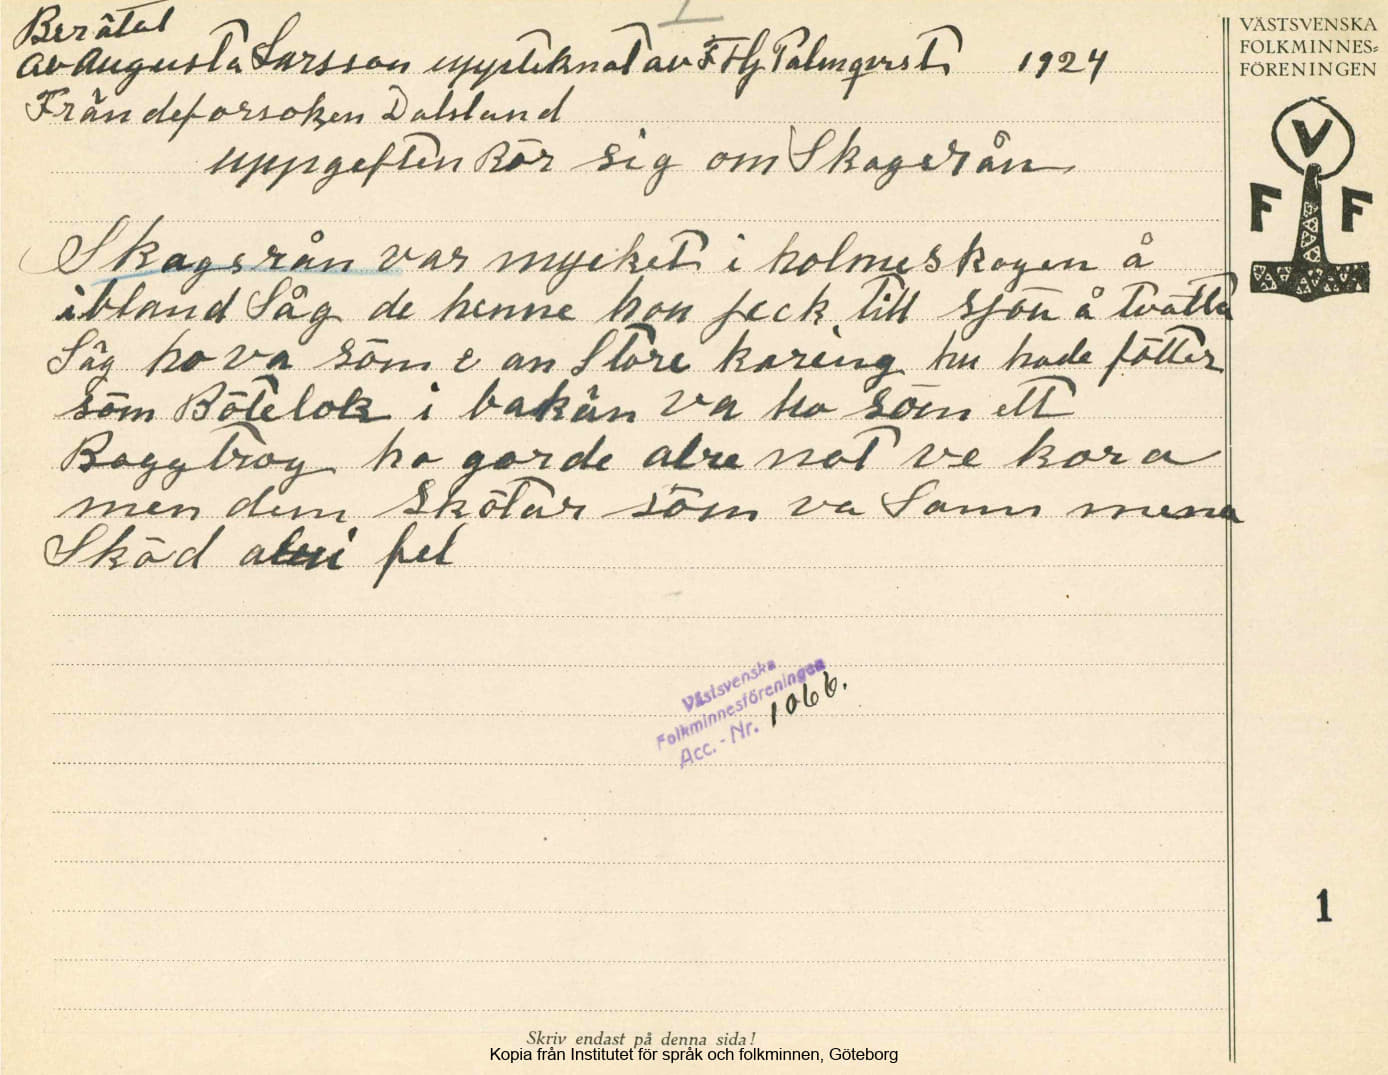 1
Berätat
av Augusta Larsson uppteknat av F Hj Palmqvist 1924
Från deforsoken Dalsland
uppgeften Rör sig om Skogsrån
Skogsrån var mycket i holmeskogen å
ibland Såg de henne hon feck till sjön å tvätta
Säg ho va söm e an Store kareing hu hade fötter
söm Bötelok i bakän va ho söm ett
Baggtrog ho gorde alre not ve kora
men dem Skötar söm va Samm mena
Sköd alri fel
VÄSTSVENSKA
FOLKMINNES-
FÖRENINGEN
V
F F
Västsvenska
Folkminnesföreningen
Acc. - Nr. 1066.
1
Skriv endast på denna sida!
Kopia från Institutet för språk och folkminnen, Göteborg